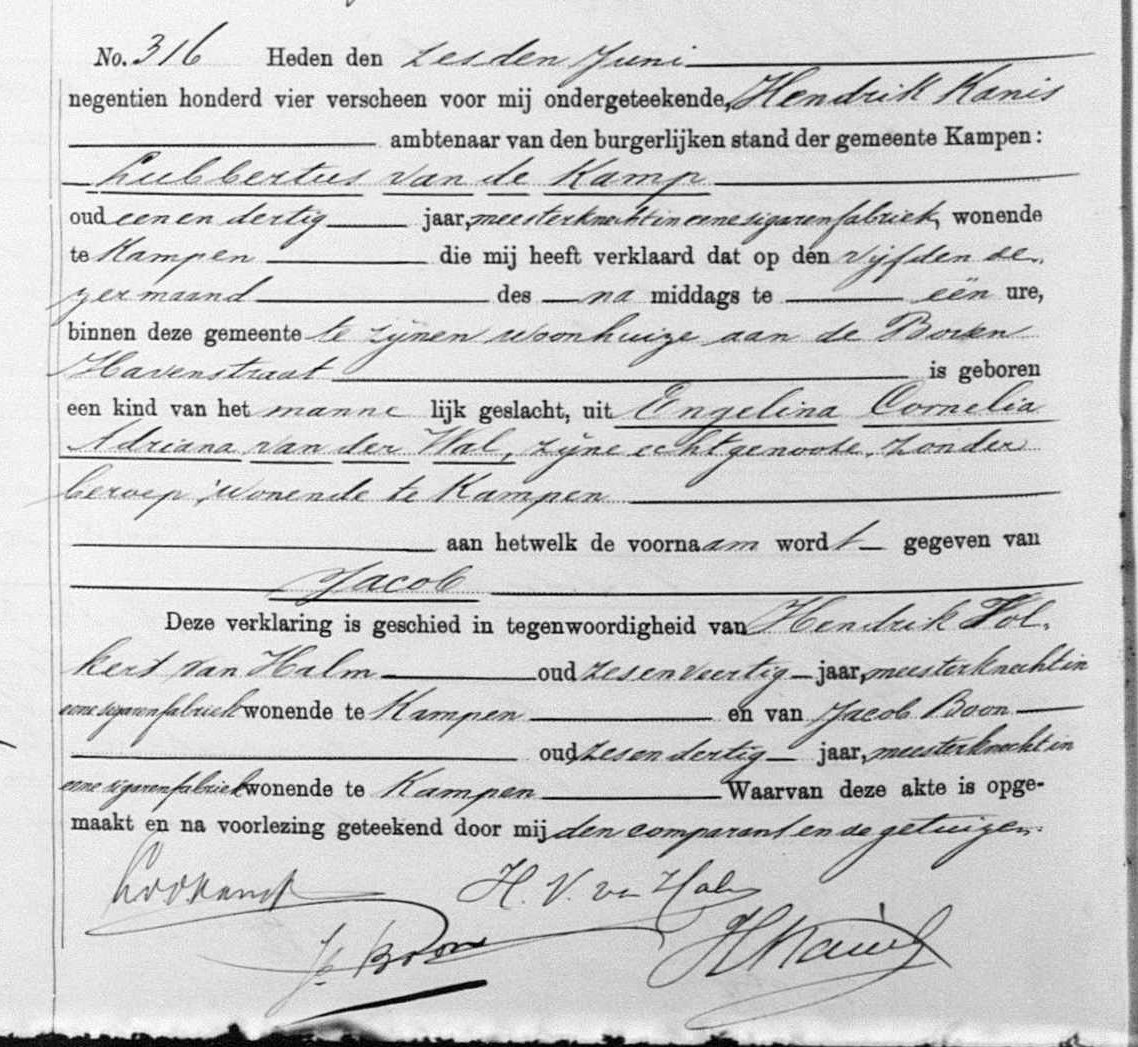 No. 316 Heden den zesden Juni
negentien honderd vier verscheen voor mij ondergeteekende, Hendrik Kanis
ambtenaar van den burgerlijken stand der gemeente Kampen:
Lubbertus van de Kamp
oud een en dertig jaar, meesterknecht in eene sigarenfabriek, wonende
te Kampen die mij heeft verklaard dat op den vijfden de-
zer maand des na middags te één ure,
binnen deze gemeente te zijnen woonhuize aan de Boven
Havenstraat is geboren
een kind van het manne lijk geslacht, uit Engelina Cornelia
Adriana van der Wal, zijne echtgenoote, zonder
beroep, wonende te Kampen
aan hetwelk de voornaam wordt gegeven van
Jacob
Deze verklaring is geschied in tegenwoordigheid van Hendrik Vol-
kert van Halm oud zesenveertig jaar, meesterknecht in
eene sigarenfabriek wonende te Kampen en van Jacob Boon
oud zesendertig jaar, meesterknecht in
eene sigarenfabriek wonende te Kampen Waarvan deze akte is opge-
maakt en na voorlezing geteekend door mij den comparant en de getuigen.
LvdKamp H. V. van Halm
Jb Boon HKanis